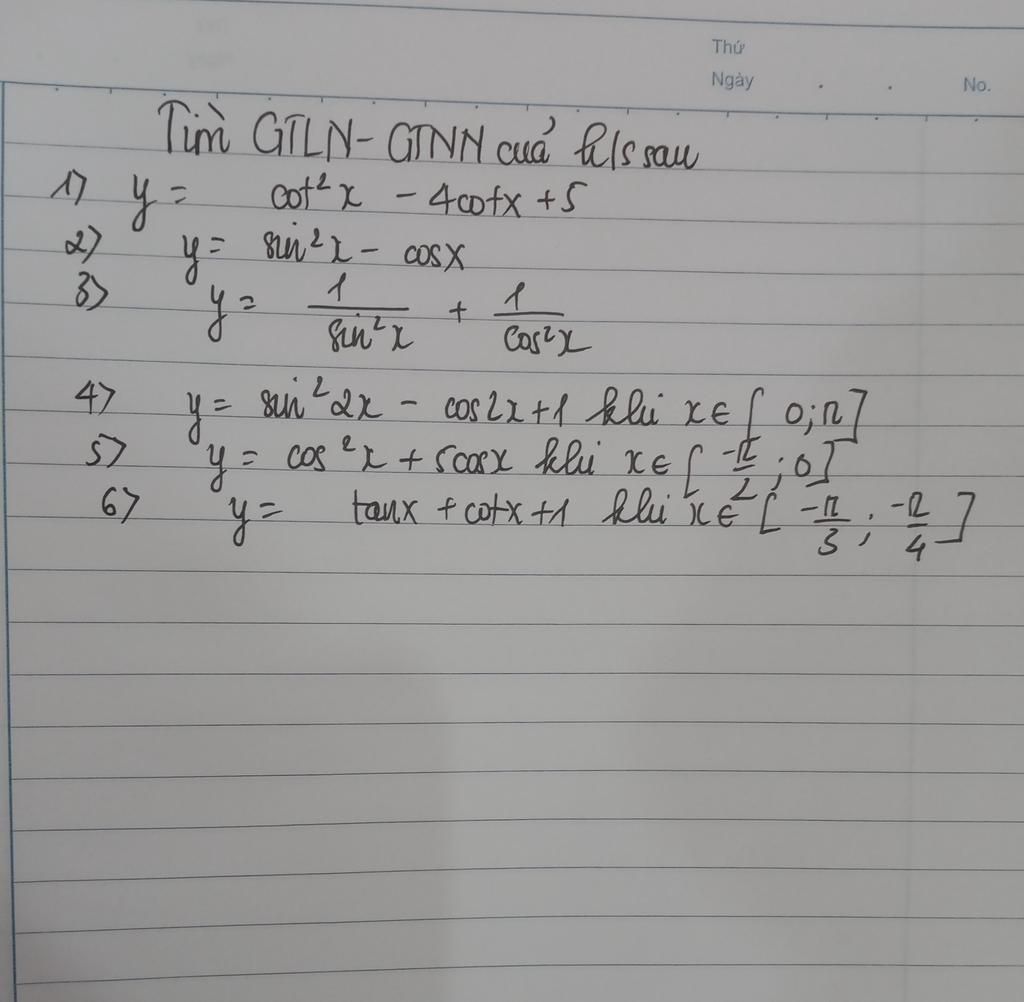 Thứ
Ngày . . No.
Tìm GTLN - GTNN cuả h/s sau
1) y = cot²x - 4cotx + 5
2) y = sin²x - cosx
3) y = 1/sin²x + 1/cos²x
4) y = sin²2x - cos2x + 1 khi x ∈ [0; π]
5) y = cos²x + 5cosx khi x ∈ [-π/2; 0]
6) y = tanx + cotx + 1 khi x ∈ [-π/3; -π/4]